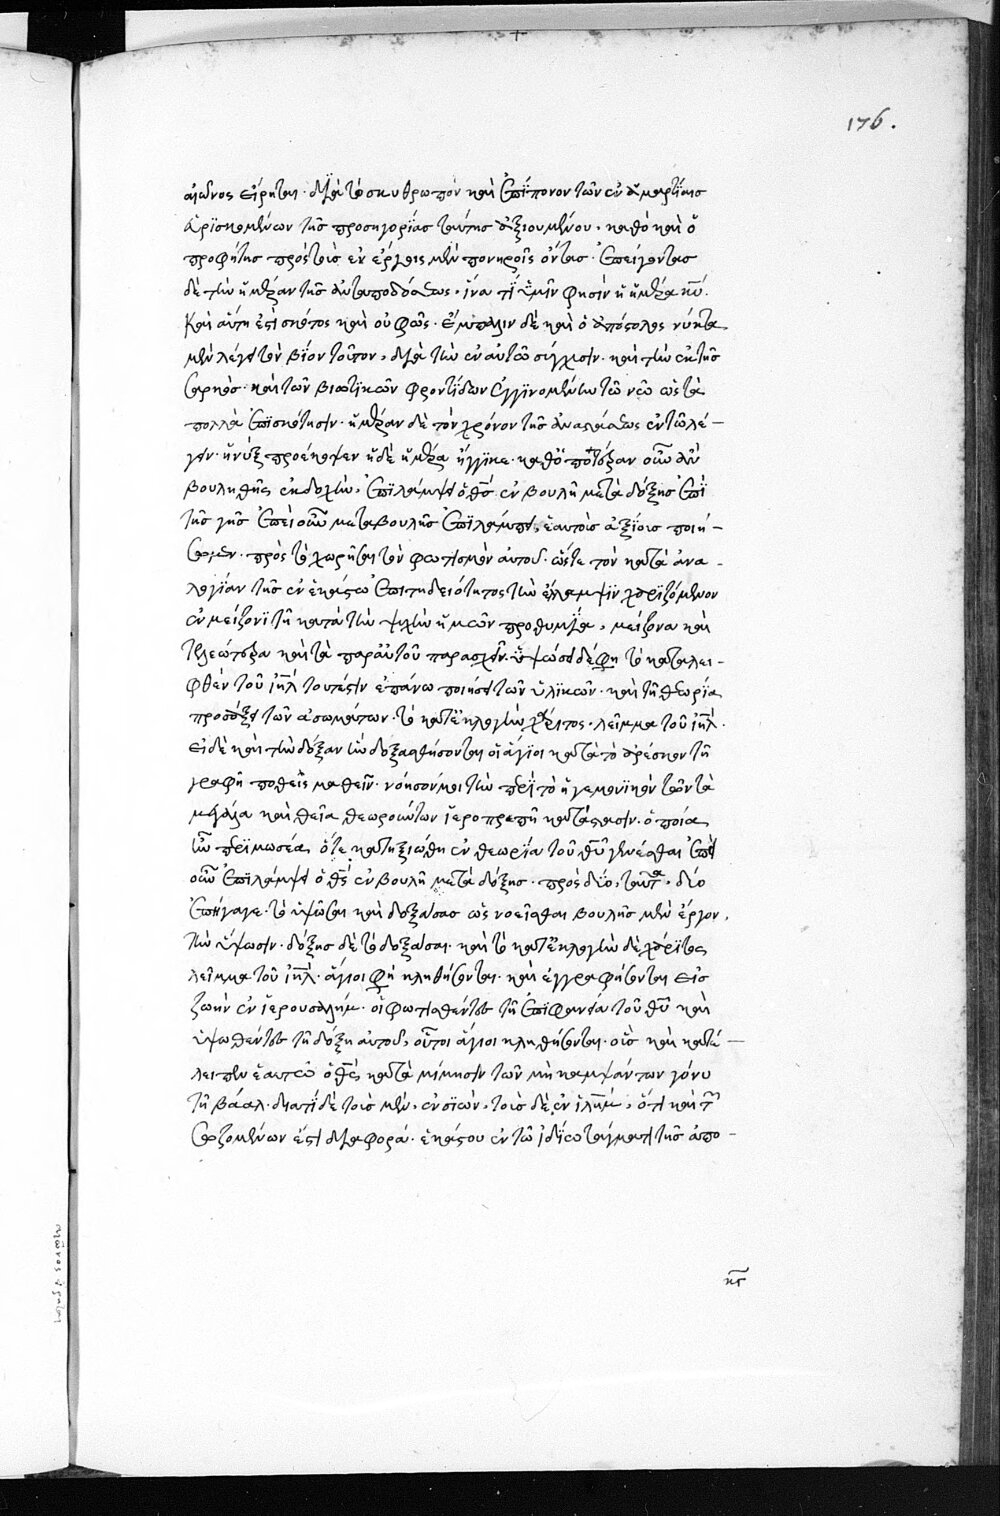 176.
αἰῶνος εἴρηται· διὰ τὸ σκυθρωπὸν καὶ ἐπίπονον τῶν ἐν ἁμαρτίαις
ἐξισταμένων τῆς προσηγορίας ταύτης ἀξιουμένου· καθὸ καὶ ὁ
προφήτης πρὸς τοὺς ἐν ἔργοις μὲν πονηροῖς ὄντας· ἐπείγοντας
δὲ τὴν ἡμέραν τῆς ἀνταποδόσεως, ἵνα τί ὑμῖν φησὶν ἡ ἡμέρα κυ·
Καὶ αὕτη ἐστὶ σκότος καὶ οὐ φῶς· ἔμπαλιν δὲ καὶ ὁ ἀπόστολος νύκτα
μὲν λέγει τὸν βίον τοῦτον, διὰ τὴν ἐν αὐτῷ σύγχυσιν· καὶ τὴν ἐκ τῆς
σαρκὸς· καὶ τῶν βιωτικῶν φροντίδων ἐγγινομένην τῷ νῷ ὡς τὰ
πολλὰ ἐπισκότησιν· ἡμέραν δὲ τὸν χρόνον τῆς ἀναστάσεως ἐν τῷ λέ-
γειν· ἡ νὺξ προέκοψεν ἡ δὲ ἡμέρα ἤγγικε· καθ' ὁποτέραν οὖν ἂν
βουληθῇς ἐκδοχήν, ἐπιλάμψει ὁ θς ἐν βουλῇ μετὰ δόξης ἐπὶ
τῆς γῆς ἐπεὶ οὖν μετὰ βουλῆς ἐπιλάμπει, ἑαυτοὺς ἀξίους ποιή-
σωμεν· πρὸς τὸ χωρῆσαι τὸν φωτισμὸν αὐτοῦ· ὥστε τὸν κατὰ ἀνα-
λογίαν τῆς ἐν ἑκάστῳ ἐπιτηδειότητος τὴν ἔλλαμψιν χαριζόμενον
ἐν μείζονι τῇ κατὰ τὴν ψυχὴν ἡμῶν προθυμίᾳ, μείζονα καὶ
τελεώτερα καὶ τὰ παρ' αὐτοῦ παρασχεῖν· ὑψώσει δέ φη τὸ καταλει-
φθὲν τοῦ ιηλ τουτέστιν ἐπάνω ποιήσει τῶν ὑλικῶν· καὶ τῇ θεωρίᾳ
προσάξει τῶν ἀσωμάτων· τὸ κατ' ἐκλογὴν χάριτος, λεῖμμα τοῦ ιηλ·
εἰ δὲ καὶ τὴν δόξαν ἣν δοξασθήσονται οἱ ἅγιοι κατὰ τὸ ἀρέσκον τῇ
γραφῇ ποθεῖς μαθεῖν· νόησόν μοι τὴν περὶ τὸ ἡγεμονικὸν τῶν τὰ
μεγάλα καὶ θεῖα θεωρούντων ἱεροπρεπῆ κατάστασιν· ὁποία
ἦν περὶ μωσέα, ὅτε κατηξιώθη ἐν θεωρίᾳ τοῦ θυ γενέσθαι ἐπεὶ
οὖν ἐπιλάμψει ὁ θς ἐν βουλῇ μετὰ δόξης· πρὸς δύο, ταῦτα, δύο
ἐπήγαγε· τὸ ὑψῶσαι καὶ δοξάσας ὡς νοεῖσθαι βουλῆς μὲν ἔργον,
τὴν ὕψωσιν· δόξης δὲ τὸ δοξάσαι· καὶ τὸ κατ' ἐκλογὴν δὲ χάριτος
λεῖμμα τοῦ ιηλ· ἅγιοι φη κληθήσονται· καὶ ἐγγραφήσονται εἰς
ζωὴν ἐν ἱερουσαλήμ· οἱ φωτισθέντες τῇ ἐπιφανείᾳ τοῦ θυ καὶ
ὑψωθέντες τῇ δόξῃ αὐτοῦ, οὗτοι ἅγιοι κληθήσονται· οὓς καὶ κατέ-
λειπεν ἑαυτῷ ὁ θς κατὰ μίμησιν τῶν μὴ καμψάντων γόνυ
τῇ βάαλ· διατί δὲ τοὺς μὲν, ἐν σιών, τοὺς δὲ ἐν ιλημ, ὅτι καὶ τῶν
σωζομένων ἐστὶ διαφορά· ἑκάστου ἐν τῷ ἰδίῳ τάγματι τῆς ἀπο-
κς